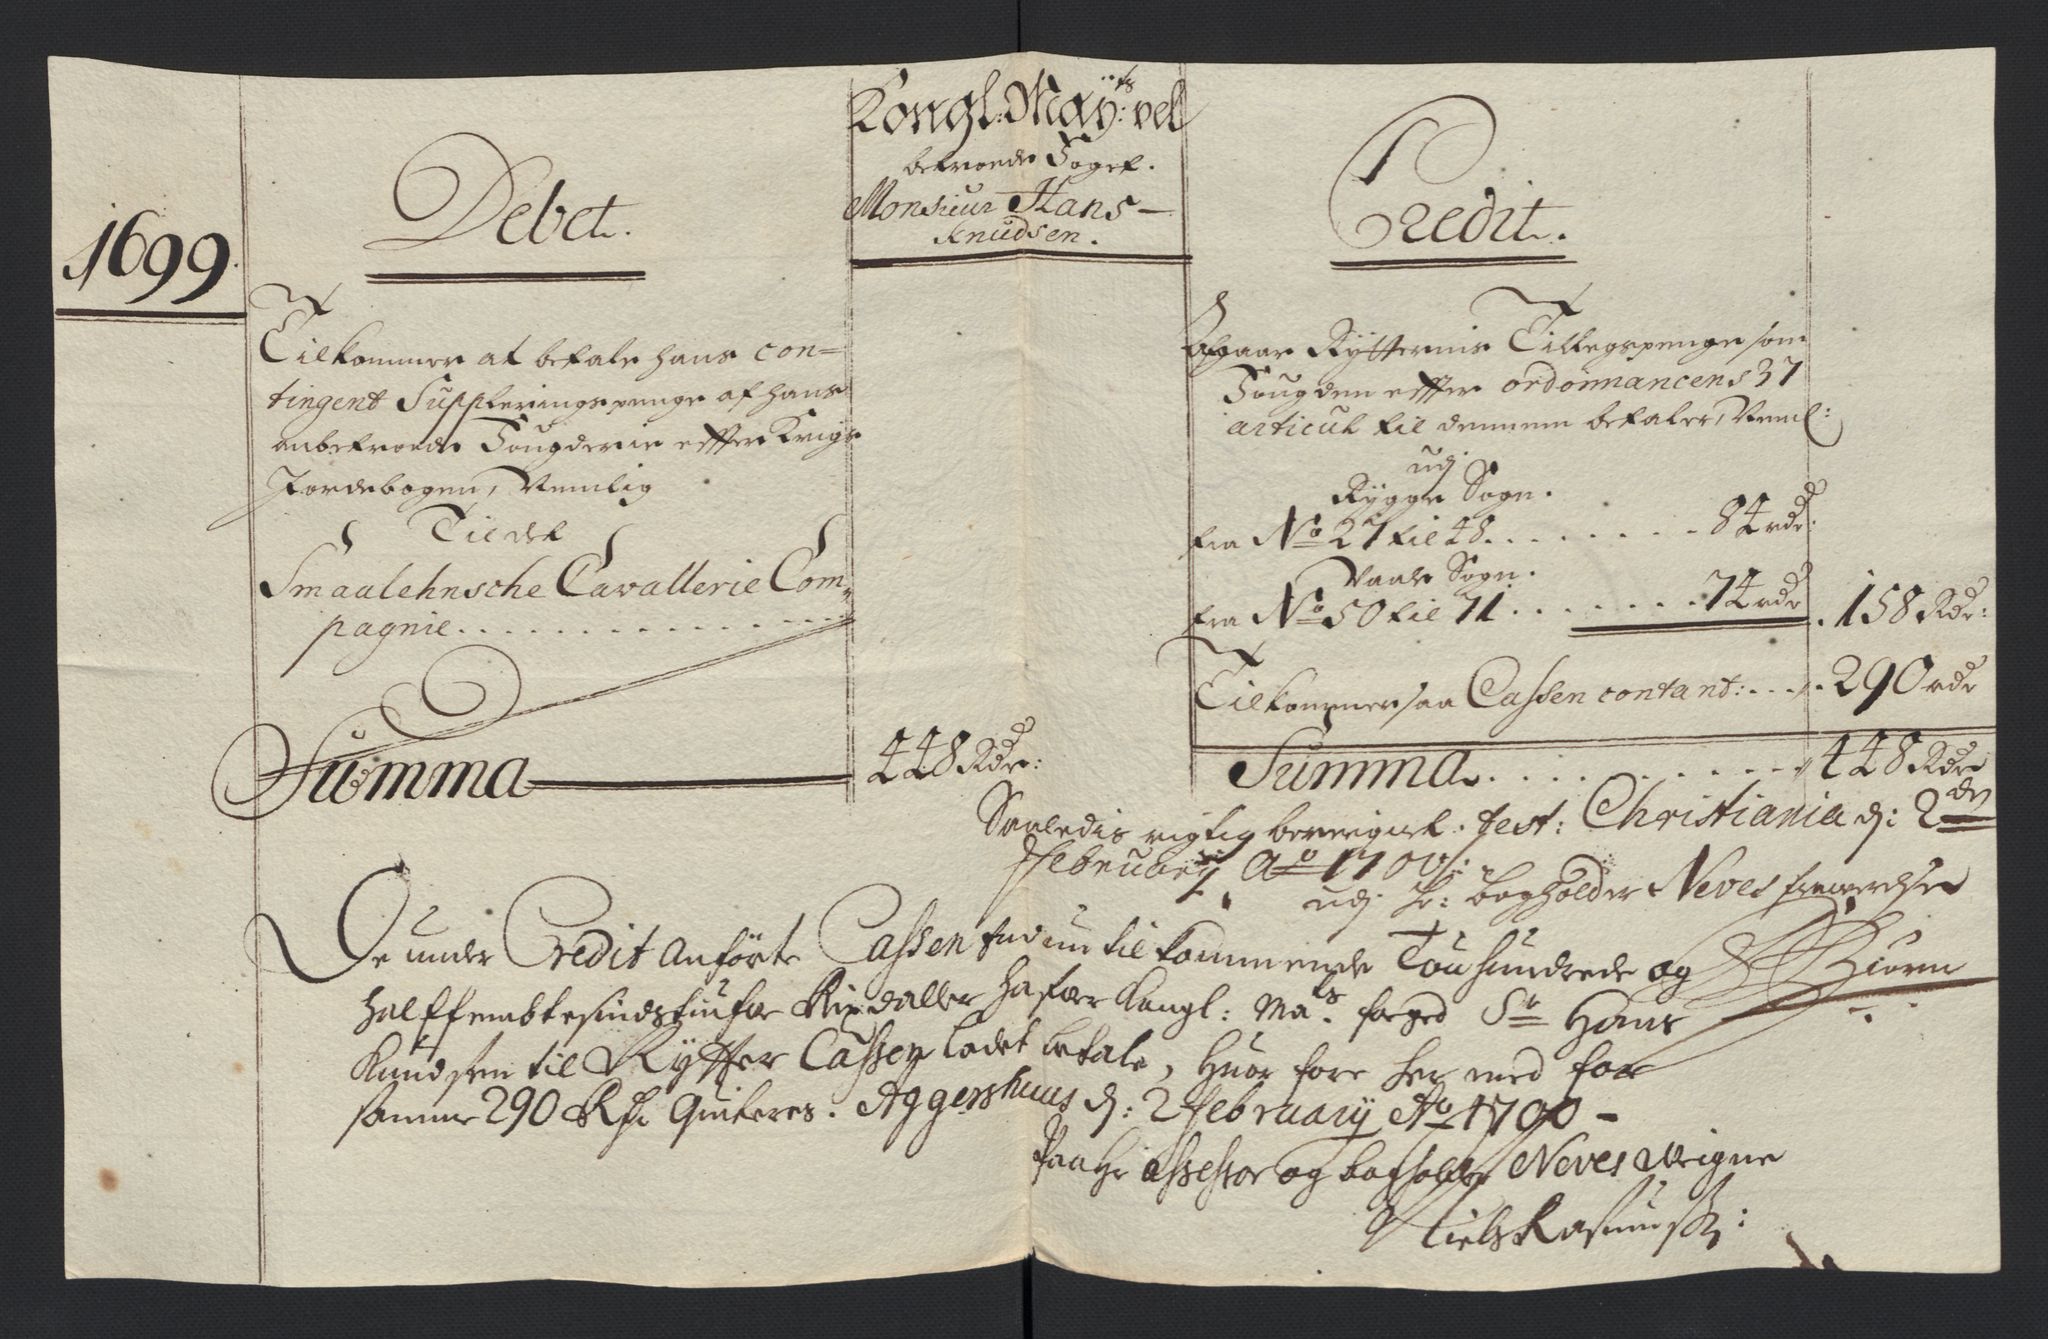 1699.
Debet.
Kongl: Mayts: vel
betroede Foget.
Monsieur Hans
Knudsen.
Credit.
Tilkommer at betale hans con=
tingent Suppleringspenge af hans
anbetroede Fougderie effter Krigs
Jordebogen, Nemlig
Til det
Smaalehnsche Cavallerie Com-
pagnie
Summa 448 Rdr:
Afgaar Rytternis Tillegspenge som
Fougden effter ordonnancens 37
articul til dennem betaler, Neml:
udj
Rygge Sogn.
fra No 27 til 48 84 rdr.
Vaale Sogn.
fra No 50 til 71 74 rdr 158 Rdr:
Tilkommer saa Cassen contant: 290 rdr
Summa 448 Rdr
Saaledis rigtig beregnet. Test: Christiania d: 2den
Februarij Ao 1700
udj hr: bogholder Neves fraværelse
Biørn
De under Credit Anførte Cassen tilkommende Touhundrede og
halffembtesindstiufve Rixdaller hafver Kongl: Mats foged Sr Hans
Knudsen til Rytter Cassen ladet betale, Huor fore her med for
samme 290 Rdr Quiteres. Aggershuus d: 2 February Ao 1700
Paa Hr Assessor og bogholder Neves Weigne
Niels Rasmussen: